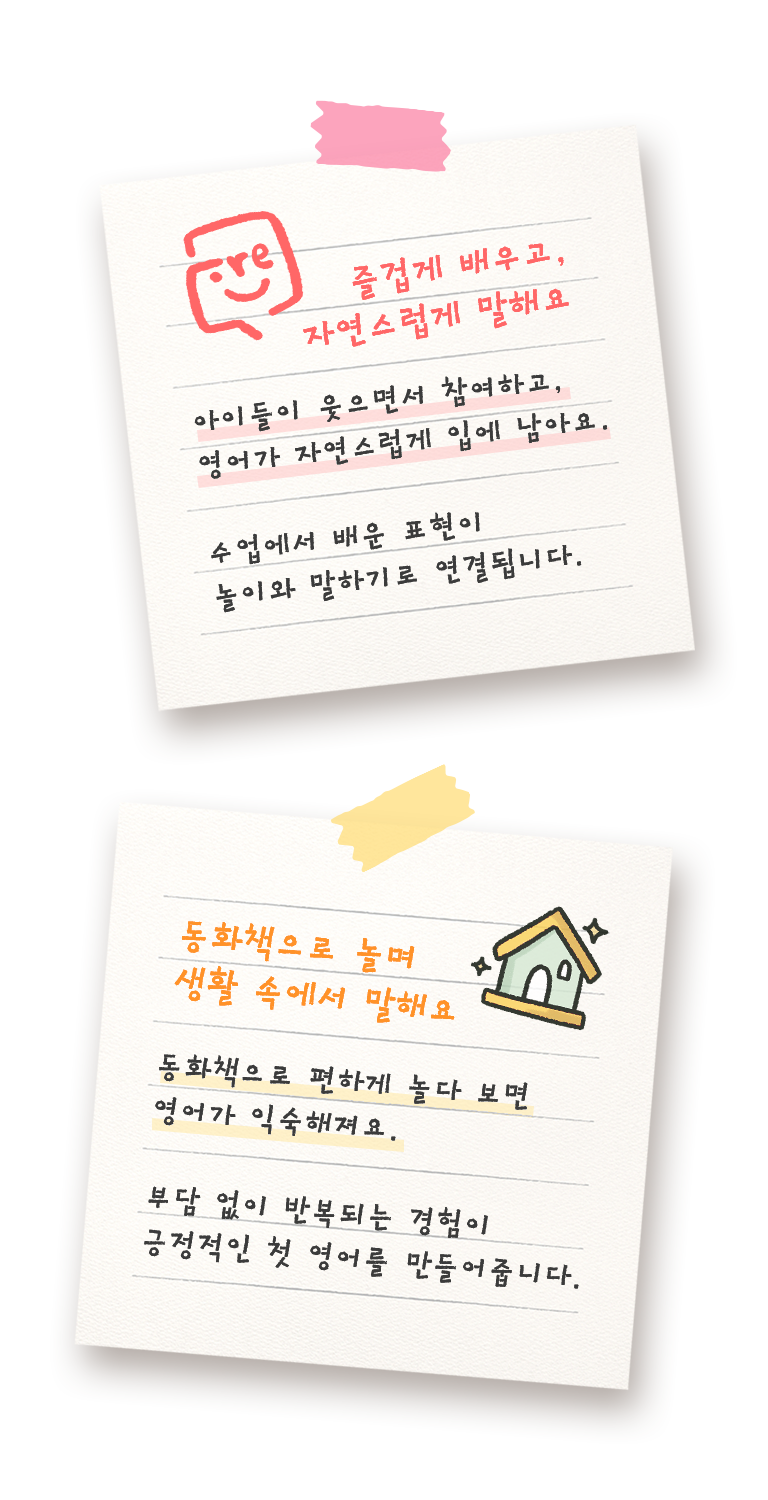 :re
즐겁게 배우고,
자연스럽게 말해요
아이들이 웃으면서 참여하고,
영어가 자연스럽게 입에 남아요.
수업에서 배운 표현이
놀이와 말하기로 연결됩니다.
동화책으로 놀며
생활 속에서 말해요
동화책으로 편하게 놀다 보면
영어가 익숙해져요.
부담 없이 반복되는 경험이
긍정적인 첫 영어를 만들어줍니다.